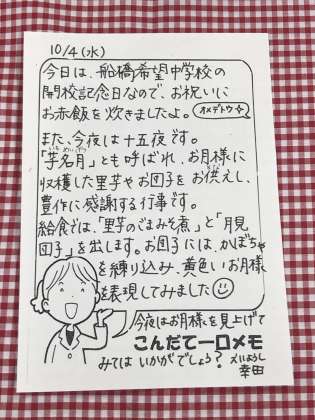 10/4(水)
今日は、船橋希望中学校の
開校記念日なので、お祝いに
お赤飯を炊きましたよ。
オメデトウ
また、今夜は十五夜です。
「芋名月」とも呼ばれ、お月様に
収穫した里芋やお団子をお供えし、
豊作に感謝する行事です。
給食では、「里芋のごまみそ煮」と「月見
団子」を出します。お団子には、かぼちゃ
を練り込み、黄色いお月様
を表現してみました
今夜はお月様を見上げて
こんだて一口メモ
みてはいかがでしょう?
幸田